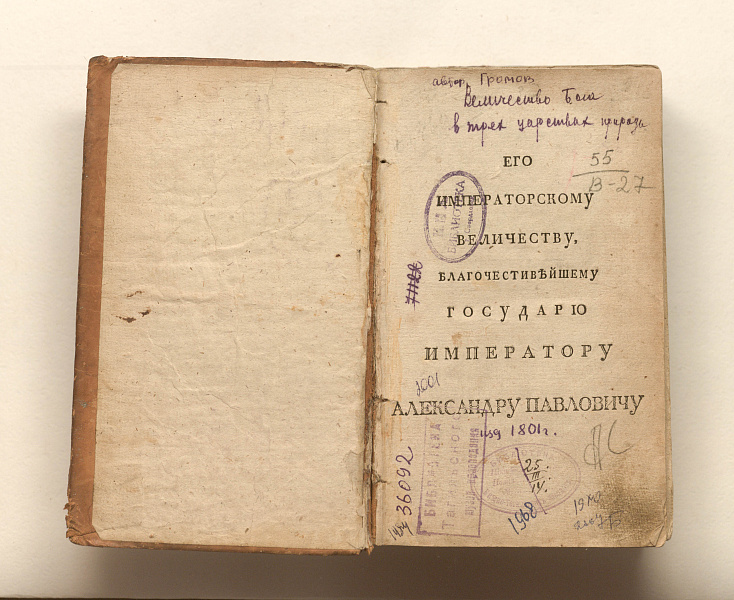 автор Громов
Величество Бога
в трех царствах природы
ЕГО
55
В-27
ИМПЕРАТОРСКОМУ
БИБЛИОТЕКА
ВЕЛИЧЕСТВУ,
БЛАГОЧЕСТИВѢЙШЕМУ
ГОСУДАРЮ
ИМПЕРАТОРУ
2001
АЛЕКСАНДРУ ПАВЛОВИЧУ
изд 1801г.
36092
БИБЛИОТЕКА
25
III
IV.
1968